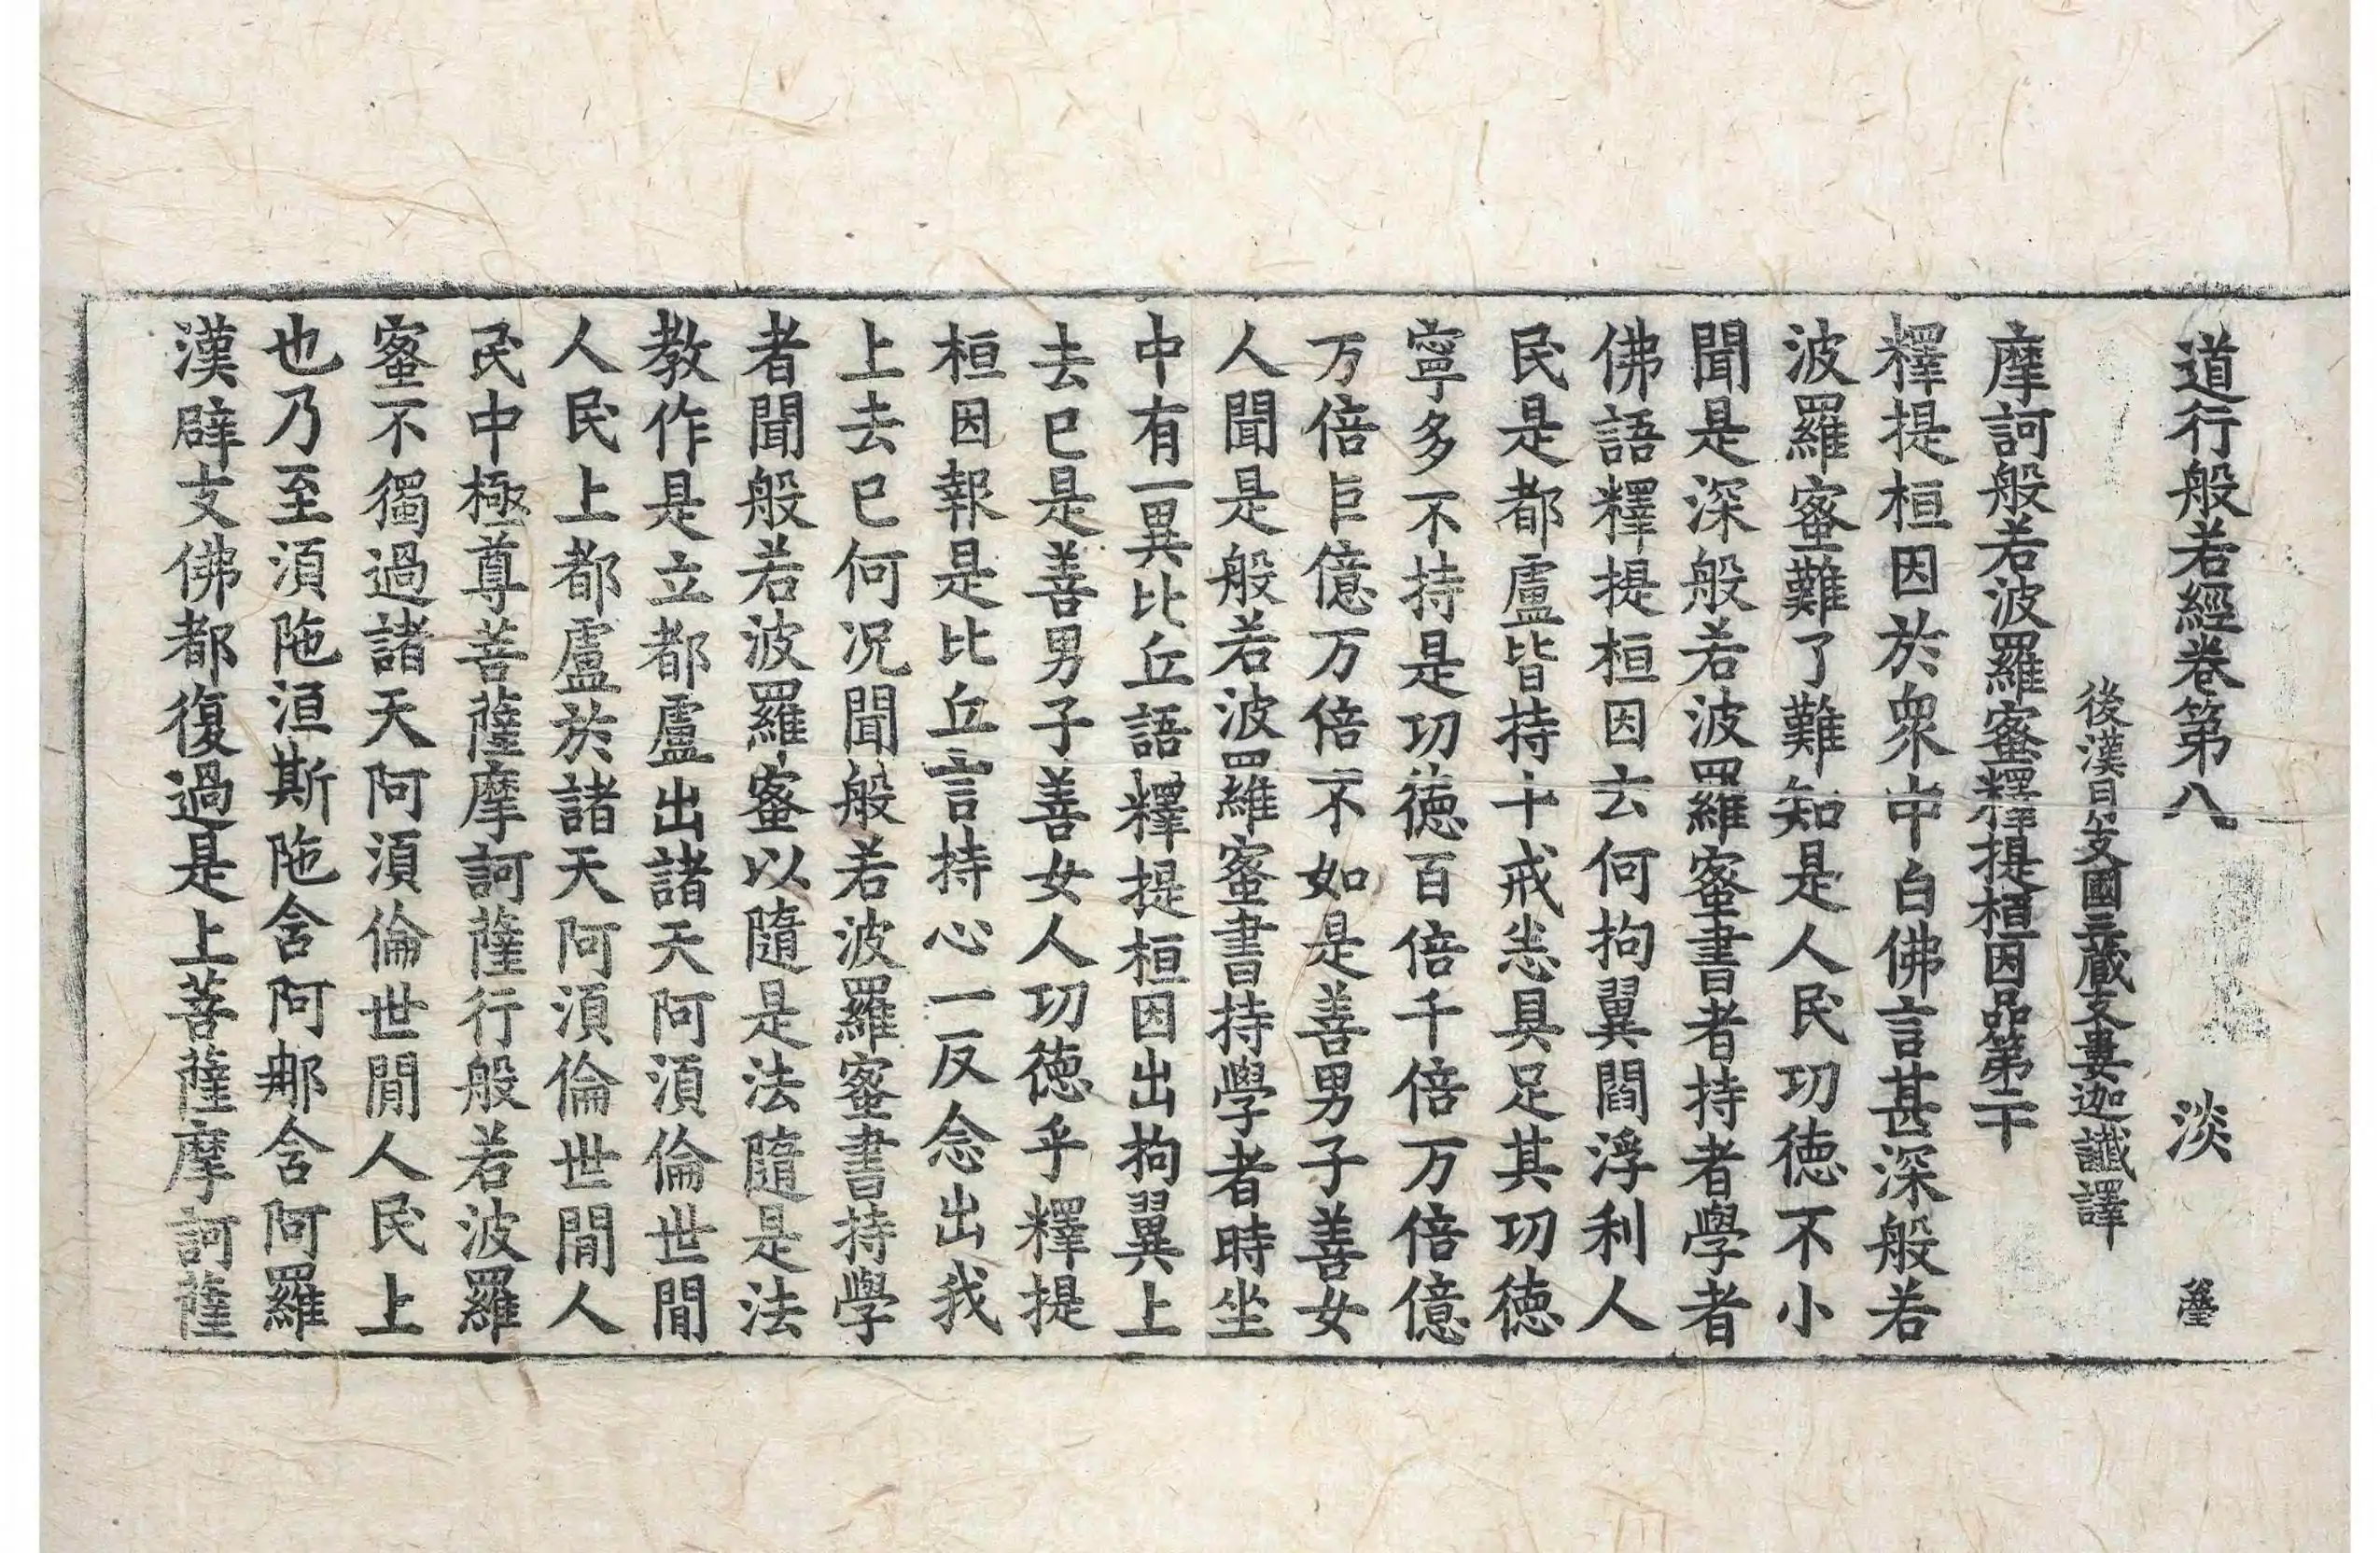 道行般若經卷第八 淡
後漢月支國三藏支婁迦讖譯
摩訶般若波羅蜜釋提桓因品第二十
釋提桓因於衆中白佛言甚深般若
波羅蜜難了難知是人民功德不小
聞是深般若波羅蜜書者持者學者
佛語釋提桓因云何拘翼閻浮利人
民是都盧皆持十戒悉具足其功德
寧多不持是功德百倍千倍万倍億
万倍巨億万倍不如是善男子善女
人聞是般若波羅蜜書持學者時坐
中有一異比丘語釋提桓因出拘翼上
去已是善男子善女人功德乎釋提
桓因報是比丘言持心一反念出我
上去已何况聞般若波羅蜜書持學
者聞般若波羅蜜以隨是法隨是法
教作是立都盧出諸天阿湏倫世閒
人民上都盧於諸天阿湏倫世閒人
民中極尊菩薩摩訶薩行般若波羅
蜜不獨過諸天阿湏倫世閒人民上
也乃至湏陁洹斯陁含阿那含阿羅
漢辟支佛都復過是上菩薩摩訶薩